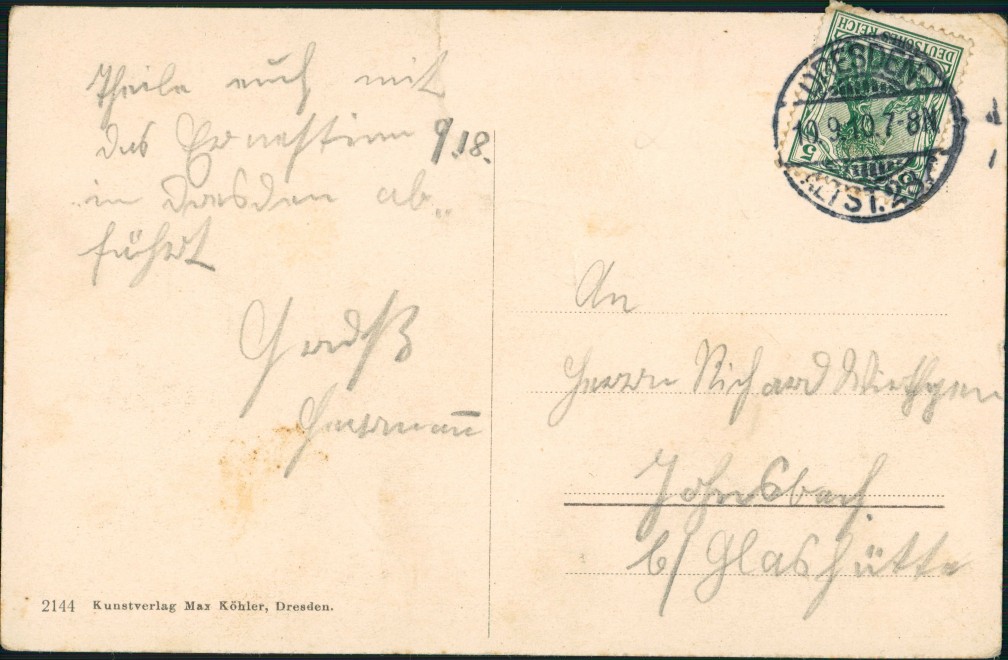 Theile euch mit
das Ernestine 9.18.
in Dresden ab-
fährt
Gruß
Hermann
2144 Kunstverlag Max Köhler, Dresden.
DEUTSCHES REICH
5
DRESDEN
10.9.10.7-8N
ALTST. 
An
Herrn Richard Wiethgen
Johnsbach
b/ Glashütte